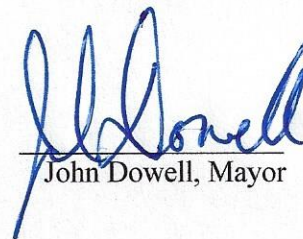 John Dowell
John Dowell, Mayor